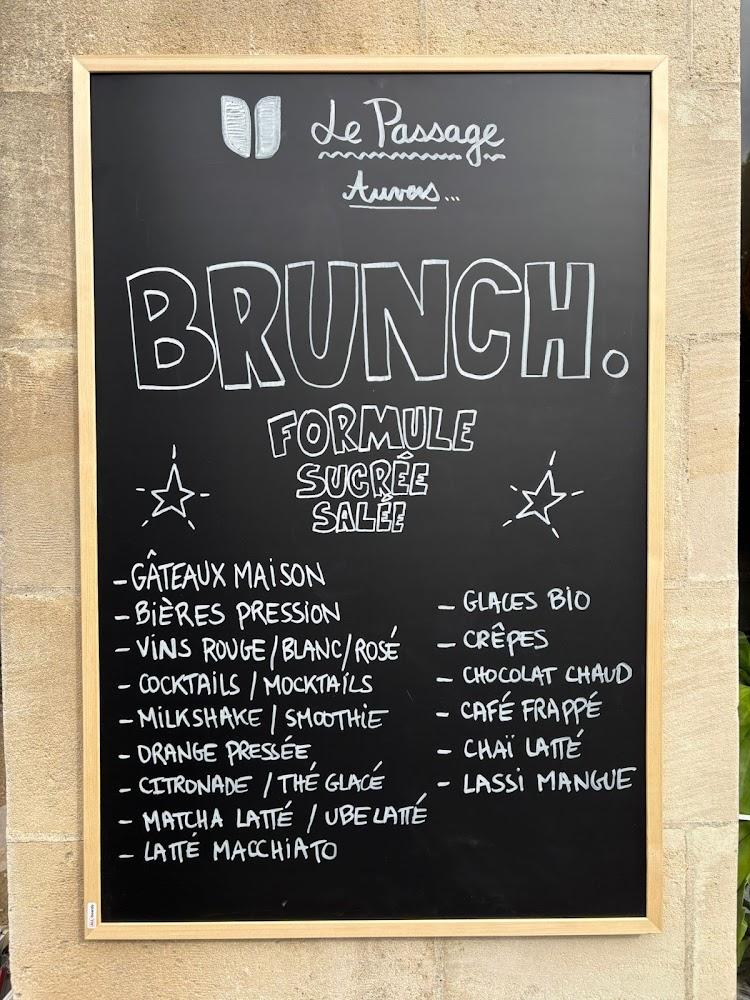 Le Passage
Auvers...
BRUNCH.
FORMULE
SUCRÉE
SALÉE
- GÂTEAUX MAISON
- BIÈRES PRESSION
- VINS ROUGE/BLANC/ROSÉ
- COCKTAILS / MOCKTAILS
- MILKSHAKE / SMOOTHIE
- ORANGE PRESSÉE
- CITRONADE / THÉ GLACÉ
- MATCHA LATTÉ / UBE LATTÉ
- LATTÉ MACCHIATO
- GLACES BIO
- CRÊPES
- CHOCOLAT CHAUD
- CAFÉ FRAPPÉ
- CHAÏ LATTÉ
- LASSI MANGUE